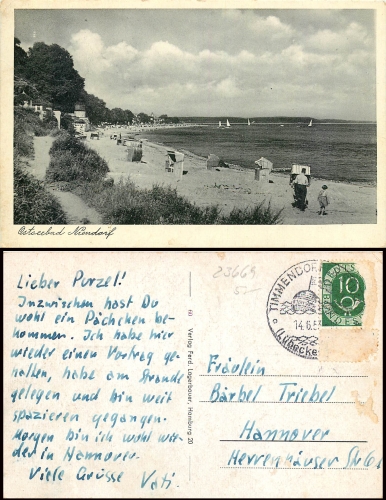 Ostseebad Niendorf
Lieber Purzel!
Inzwischen hast Du
wohl ein Päckchen be-
kommen. Ich habe hier
wieder einen Vortrag ge-
halten, habe am Strande
gelegen und bin weit
spazieren gegangen.
Morgen bin ich wohl wie-
der in Hannover.
Viele Grüsse Vati.
Verlag Ferd. Lagerbauer, Hamburg 20
23669
TIMMENDOR
14.6.5
(Lübecke
10
Fräulein
Bärbel Triebel
Hannover
Herrenhäuser Str.